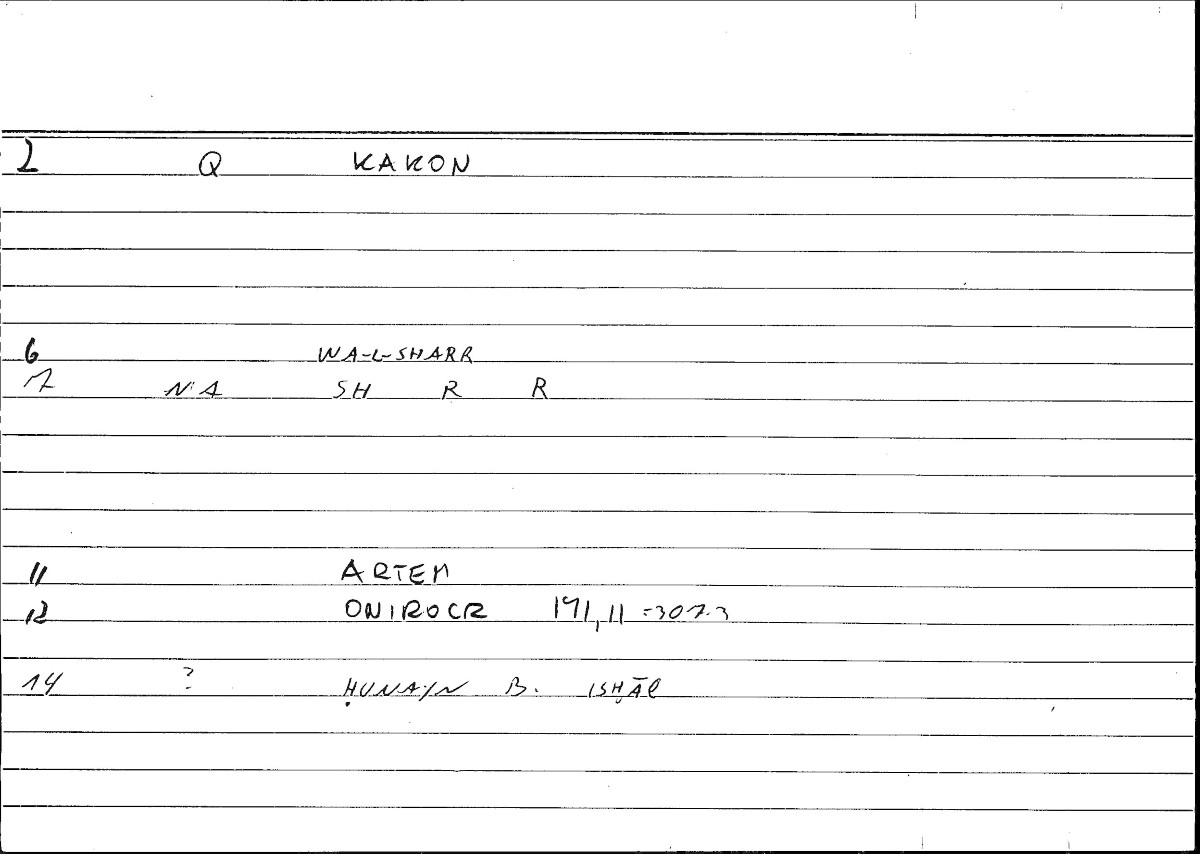 2 Q KAKON
6 WA-L-SHARR
7 N'A SH R R
11 ARTEM
12 ONIROCR 191,11 =307.3
14 ? ḤUNAYN B. ISḤĀQ